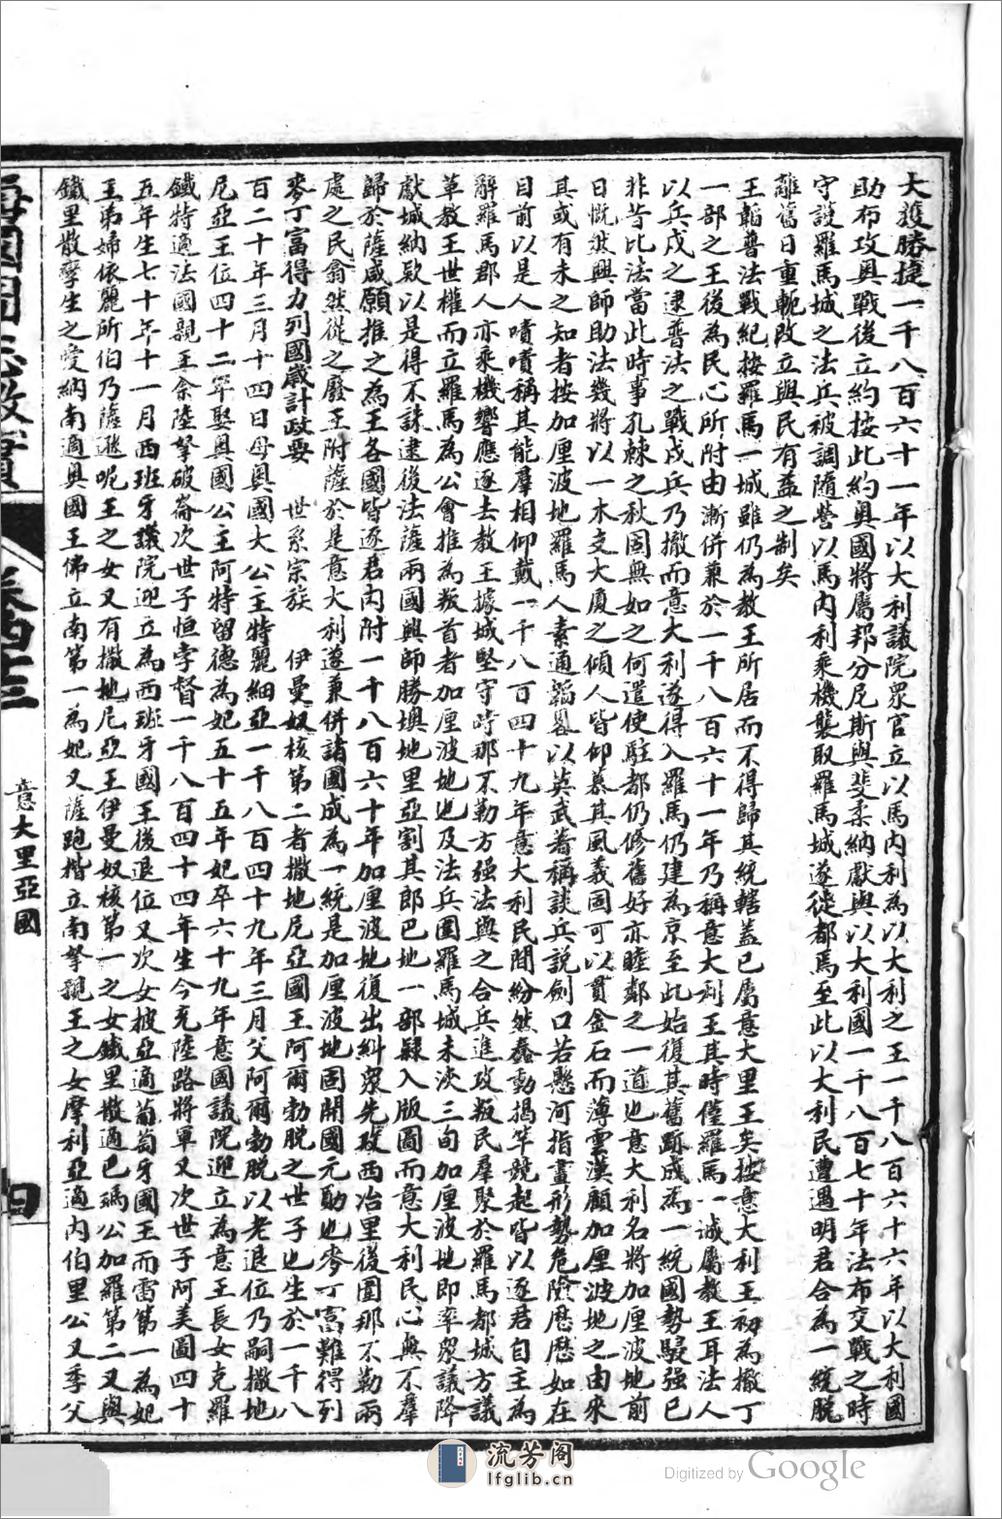 大獲勝捷一千八百六十一年以大利議院衆官立以馬內利為以大利之王一千八百六十六年以大利國
助布攻奥戰後立約按此約奥國將屬邦分尼斯與斐柔納獻與以大利國一千八百七十年法布交戰之時
守設羅馬城之法兵被調隨營以馬內利乘機襲取羅馬城遂徙都焉至此以大利民遭遇明君合為一統脫
離舊日重軛改立與民有益之制矣
王韜普法戰紀按羅馬一城雖仍為教王所居而不得歸其統轄蓋已屬意大里王矣按意大利王初為撒丁
一部之王後為民心所附由漸併兼於一千八百六十一年乃稱意大利王其時僅羅馬一城屬教王耳法人
以兵戍之逮普法之戰戍兵乃撤而意大利遂得入羅馬仍建為京至此始復其舊跡成為一統國勢駸强已
非昔比法當此時事孔棘之秋固無如之何遣使駐都仍修舊好亦睦鄰之一道也意大利名將加厘波地前
日慨然興師助法幾將以一木支大廈之傾人皆仰慕其風義固可以貫金石而薄雲漢顧加厘波地之由來
其或有未之知者按加厘波地羅馬人素通韜畧以英武著稱談兵說劍口若懸河指畫形勢危險歷歷如在
目前以是人嘖嘖稱其能羣相仰戴一千八百四十九年意大利民間紛然蠢動揭竿競起皆以逐君自主為
辭羅馬郡人亦乘機響應逐去教王據城堅守時那不勒方强法與之合兵進攻叛民羣聚於羅馬都城方議
革教王世權而立羅馬為公會推為叛首者加厘波地也及法兵圍羅馬城未浹三旬加厘波地即率衆議降
獻城納欵以是得不誅逮後法薩兩國興師勝墺地里亞割其郎巴地一部隸入版圖而意大利民心無不羣
歸於薩咸願推之為王各國皆逐君內附一千八百六十年加厘波地復出糾衆先攻西治里後圍那不勒兩
處之民翕然從之廢王附薩於是意大利遂兼併諸國成為一統是加厘波地固開國元勛也麥丁富難得列
麥丁富得力列國歲計政要　世系宗族　伊曼奴核第二者撒地尼亞國王阿爾勃脫之世子也生於一千八
百二十年三月十四日母奥國大公主特麗細亞一千八百四十九年三月父阿爾勃脫以老退位乃嗣撒地
尼亞王位四十二年娶奥國公主阿特留德為妃五十五年妃卒六十九年意國議院迎立為意王長女克羅
鐵特適法國親王佘陸拏破崙次世子恒孛督一千八百四十四年生今充陸路將軍又次世子阿美圖四十
五年生七十年十一月西班牙議院迎立為西班牙國王後退位又次女披亞適葡萄牙國王而雷第一為妃
王弟婦依麗所伯乃薩遜呢王之女又有撒地尼亞王伊曼奴核第一之女鐵里散適巴碼公加羅第二又與
鐵里散孿生之愛納南適奥國王佛立南第一為妃又薩跑楷立南拏親王之女摩利亞適內伯里公又季父
海國圖志
卷四十三
意大里亞國
四
流芳阁
lfglib.cn
Digitized by Google